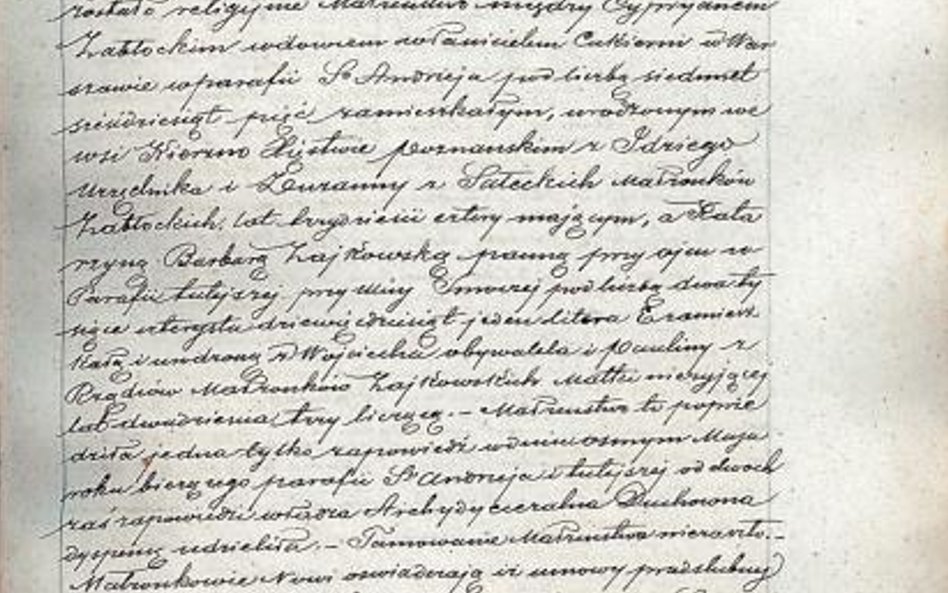 zostało religijne Małżeństwo między Cypryanem
Zabłockim wdowcem właścicielem Cukierni w War
szawie w parafii Sº Andrzeja pod liczbą siedmset
sześćdziesiąt pięć zamieszkałym, urodzonym we
wsi Xięstwie poznanskim z Idziego
Urzędnika i Zuzanny z Sateckich Małżonków
Zabłockich, lat trzydzieści cztery mającym, a Kata
rzyną Barbarą Zajkowską panną przy ojcu w
Parafii tutejszej przy ulicy pod liczbą dwa ty
siące czterysta dziewięćdziesiąt jeden litera E zamiesz
kałą i urodzoną z Wojciecha obywatela i Pauliny z
Małżonków Zajkowskich Matki nieżyjącej
lat dwadzieścia trzy liczącą. – Małżeństwo to poprze
dziła jedna tylko zapowiedź w dniu osmym Maja
roku bieżącego parafii Sº Andrzeja i tutejszej od dwóch
zaś zapowiedzi władza Archydyecezalna Duchowna
dyspensę udzieliła. – Tamowanie Małżeństwa niezaszło. –
Małżonkowie Nowi oswiadczają iż umowy przedślubnej